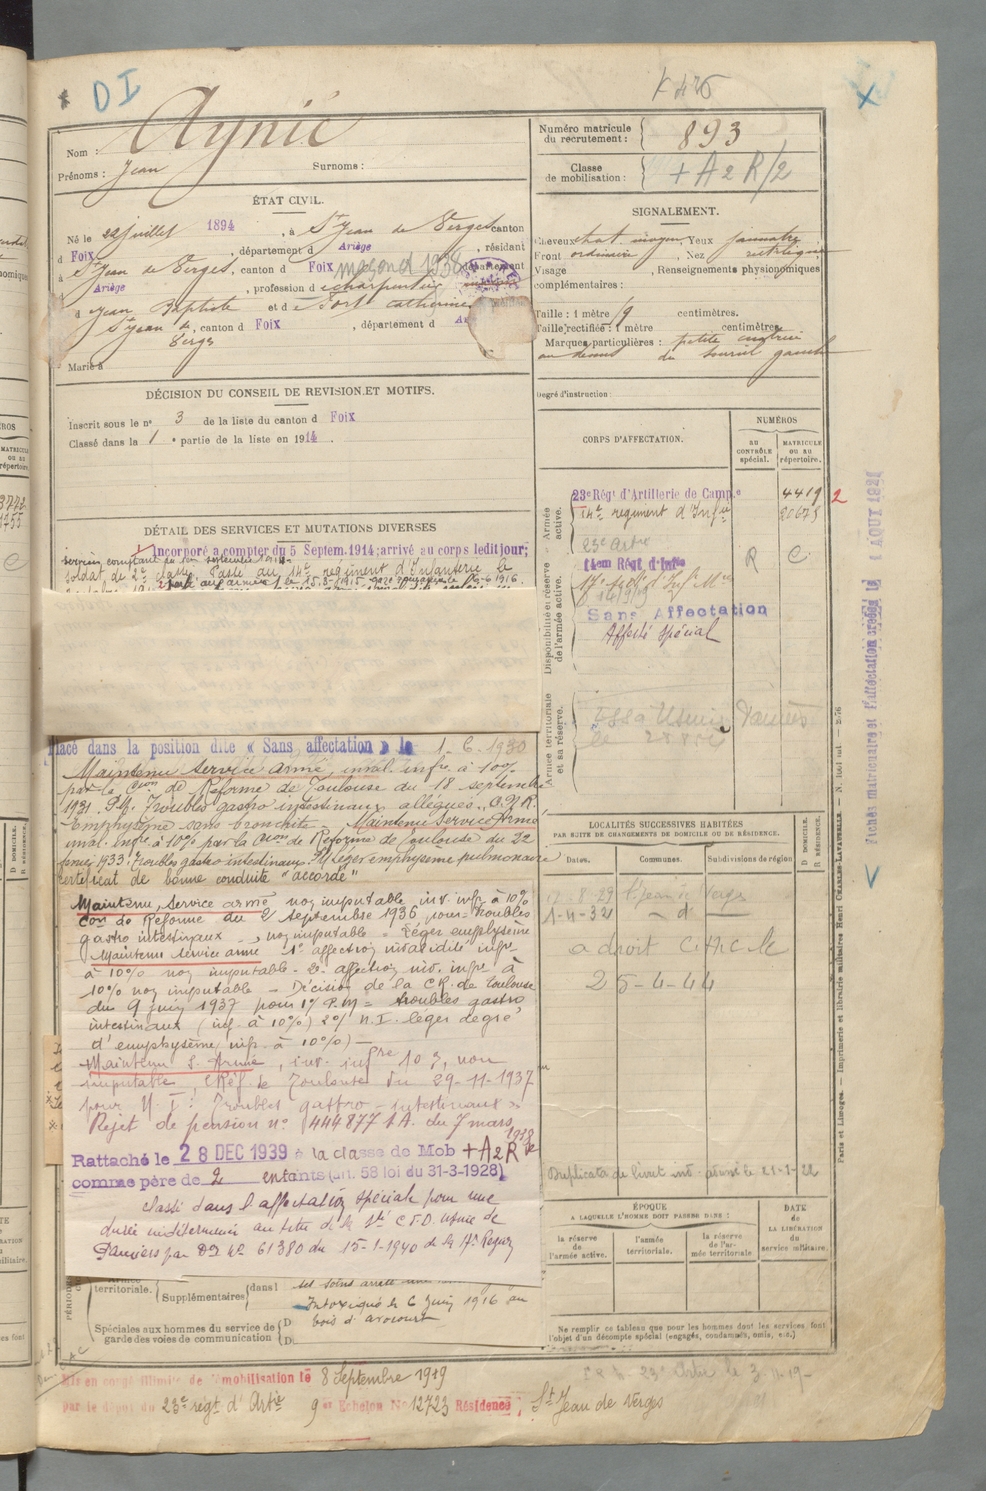 DI
K 476
Nom : Aynié
Prénoms : Jean Surnoms :
Numéro matricule du recrutement : 893
Classe de mobilisation : + A 2 R/2
ÉTAT CIVIL.
Né le 22 juillet 1894, à St Jean de Verges canton
d Foix, département d Ariège, résidant
à St Jean de Verges, canton d Foix maçon 1938 département
d Ariège, profession d charpentier
d Jean Baptiste et d Fort Catherine
St Jean de Verges, canton d Foix, département d
Marié à
SIGNALEMENT.
Cheveux chat. moyen, Yeux jaunâtre
Front ordinaire, Nez rectiligne
Visage , Renseignements physionomiques
complémentaires :
Taille : 1 mètre 9 centimètres.
Taille rectifiée : 1 mètre centimètres.
Marques particulières : petite cicatrice
au dessus du sourcil gauche
Degré d'instruction :
DÉCISION DU CONSEIL DE REVISION ET MOTIFS.
Inscrit sous le n° 3 de la liste du canton d Foix
Classé dans la 1e partie de la liste en 1914.
CORPS D'AFFECTATION.
NUMÉROS
AU CONTRÔLE spécial.
MATRICULE OU AU répertoire.
Armée active.
23e Régt d'Artillerie de Campe 4419 2
14e regiment d'Infie 20678
Disponibilité et réserve de l'armée active.
23e Artie R C
14em Régt d'Infie
Sans Affectation
Affecté spécial
Armée territoriale et sa réserve.
DÉTAIL DES SERVICES ET MUTATIONS DIVERSES
Incorporé à compter du 5 Septem. 1914; arrivé au corps ledit jour;
soldat de 2e classe. Passé au 14e regiment d'Infanterie le
Placé dans la position dite « Sans affectation » le 1-6-1930
Maintenu service armé, inval. infre à 10%
par la Cion de Réforme de Toulouse du 18 septembre
1931. P.M. Troubles gastro intestinaux allégués. O.N.R.
Emphysème sans bronchite - Maintenu Service Armé
inval. Infre à 10% par la Cion de Réforme de Toulouse du 22
1933. Troubles gastro intestinaux. léger emphyseme pulmonaire
certificat de bonne conduite "accordé"
Maintenu, service armé non imputable inv. infr à 10%
Con de Réforme du 2 septembre 1936 pour troubles
gastro intestinaux -, non imputable = léger emphysème
Maintenu service armé 1° affection invalidité infre
à 10% non imputable - 2° affection inv. infre à
10% non imputable - Décision de la C.R. de Toulouse
du 9 juin 1937 pour 1°/ P.M = troubles gastro
intestinaux (inf. à 10%) 2°/ N.I. leger degré
d'emphysème, inf. à 10%) -
Maintenu S. Armé, inv. infre 10%, non
imputable, CRéf. de Toulouse du 29-11-1937
pour N.I : Troubles gastro-intestinaux »
Rejet de pension n° 444877 1A. du 7 mars 1938
Rattaché le 28 DEC 1939 à la classe de Mob + A 2 R
comme père de 2 enfants (art. 58 loi du 31-3-1928)
classé dans l'affectation spéciale pour une
durée indéterminée au titre de la Sté C.T.D. Usine de
Pamiers par DI N° 61380 du 15-1-1940 de la 17e Région
LOCALITÉS SUCCESSIVES HABITÉES
PAR SUITE DE CHANGEMENTS DE DOMICILE OU DE RÉSIDENCE.
Dates. Communes. Subdivisions de région
D DOMICILE. R RÉSIDENCE.
8-29 St Jean de Verges
1-4-32 - d° -
a droit C.th.C le
25-4-44
Duplicata de livret ind.
ÉPOQUE
A LAQUELLE L'HOMME DOIT PASSER DANS :
la réserve de l'armée active.
l'armée territoriale.
la réserve de l'armée territoriale
DATE de LA LIBÉRATION du service militaire.
Ne remplir ce tableau que pour les hommes dont les services font
l'objet d'un décompte spécial (engagés, condamnés, omis, e.c.)
territoriale. Supplémentaires dans l
Intoxiqué le 6 juin 1916 au
bois d'avocourt
Spéciales aux hommes du service de garde des voies de communication D D
Mis en congé illimité de démobilisation le 8 Septembre 1919
par le dépôt du 23e régt d'Artie 9er Echelon No 12723 Résidence : St Jean de Verges
Fiches matriculaire et d'affectation créées le 1 AOUT 1921
Paris et Limoges. — Imprimerie et librairie militaires Henri CHARLES-LAVAUZELLE.